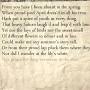 From you have I been absent in the spring,
When proud pied April dress'd in all his trim
Hath put a spirit of youth in every thing,
That heavy Saturn laugh'd and leap'd with him.
Yet nor the lays of birds nor the sweet smell
Of different flowers in odour and in hue
Could make me any summer's story tell,
Or from their proud lap pluck them where they grew;
Nor did I wonder at the lily's white,